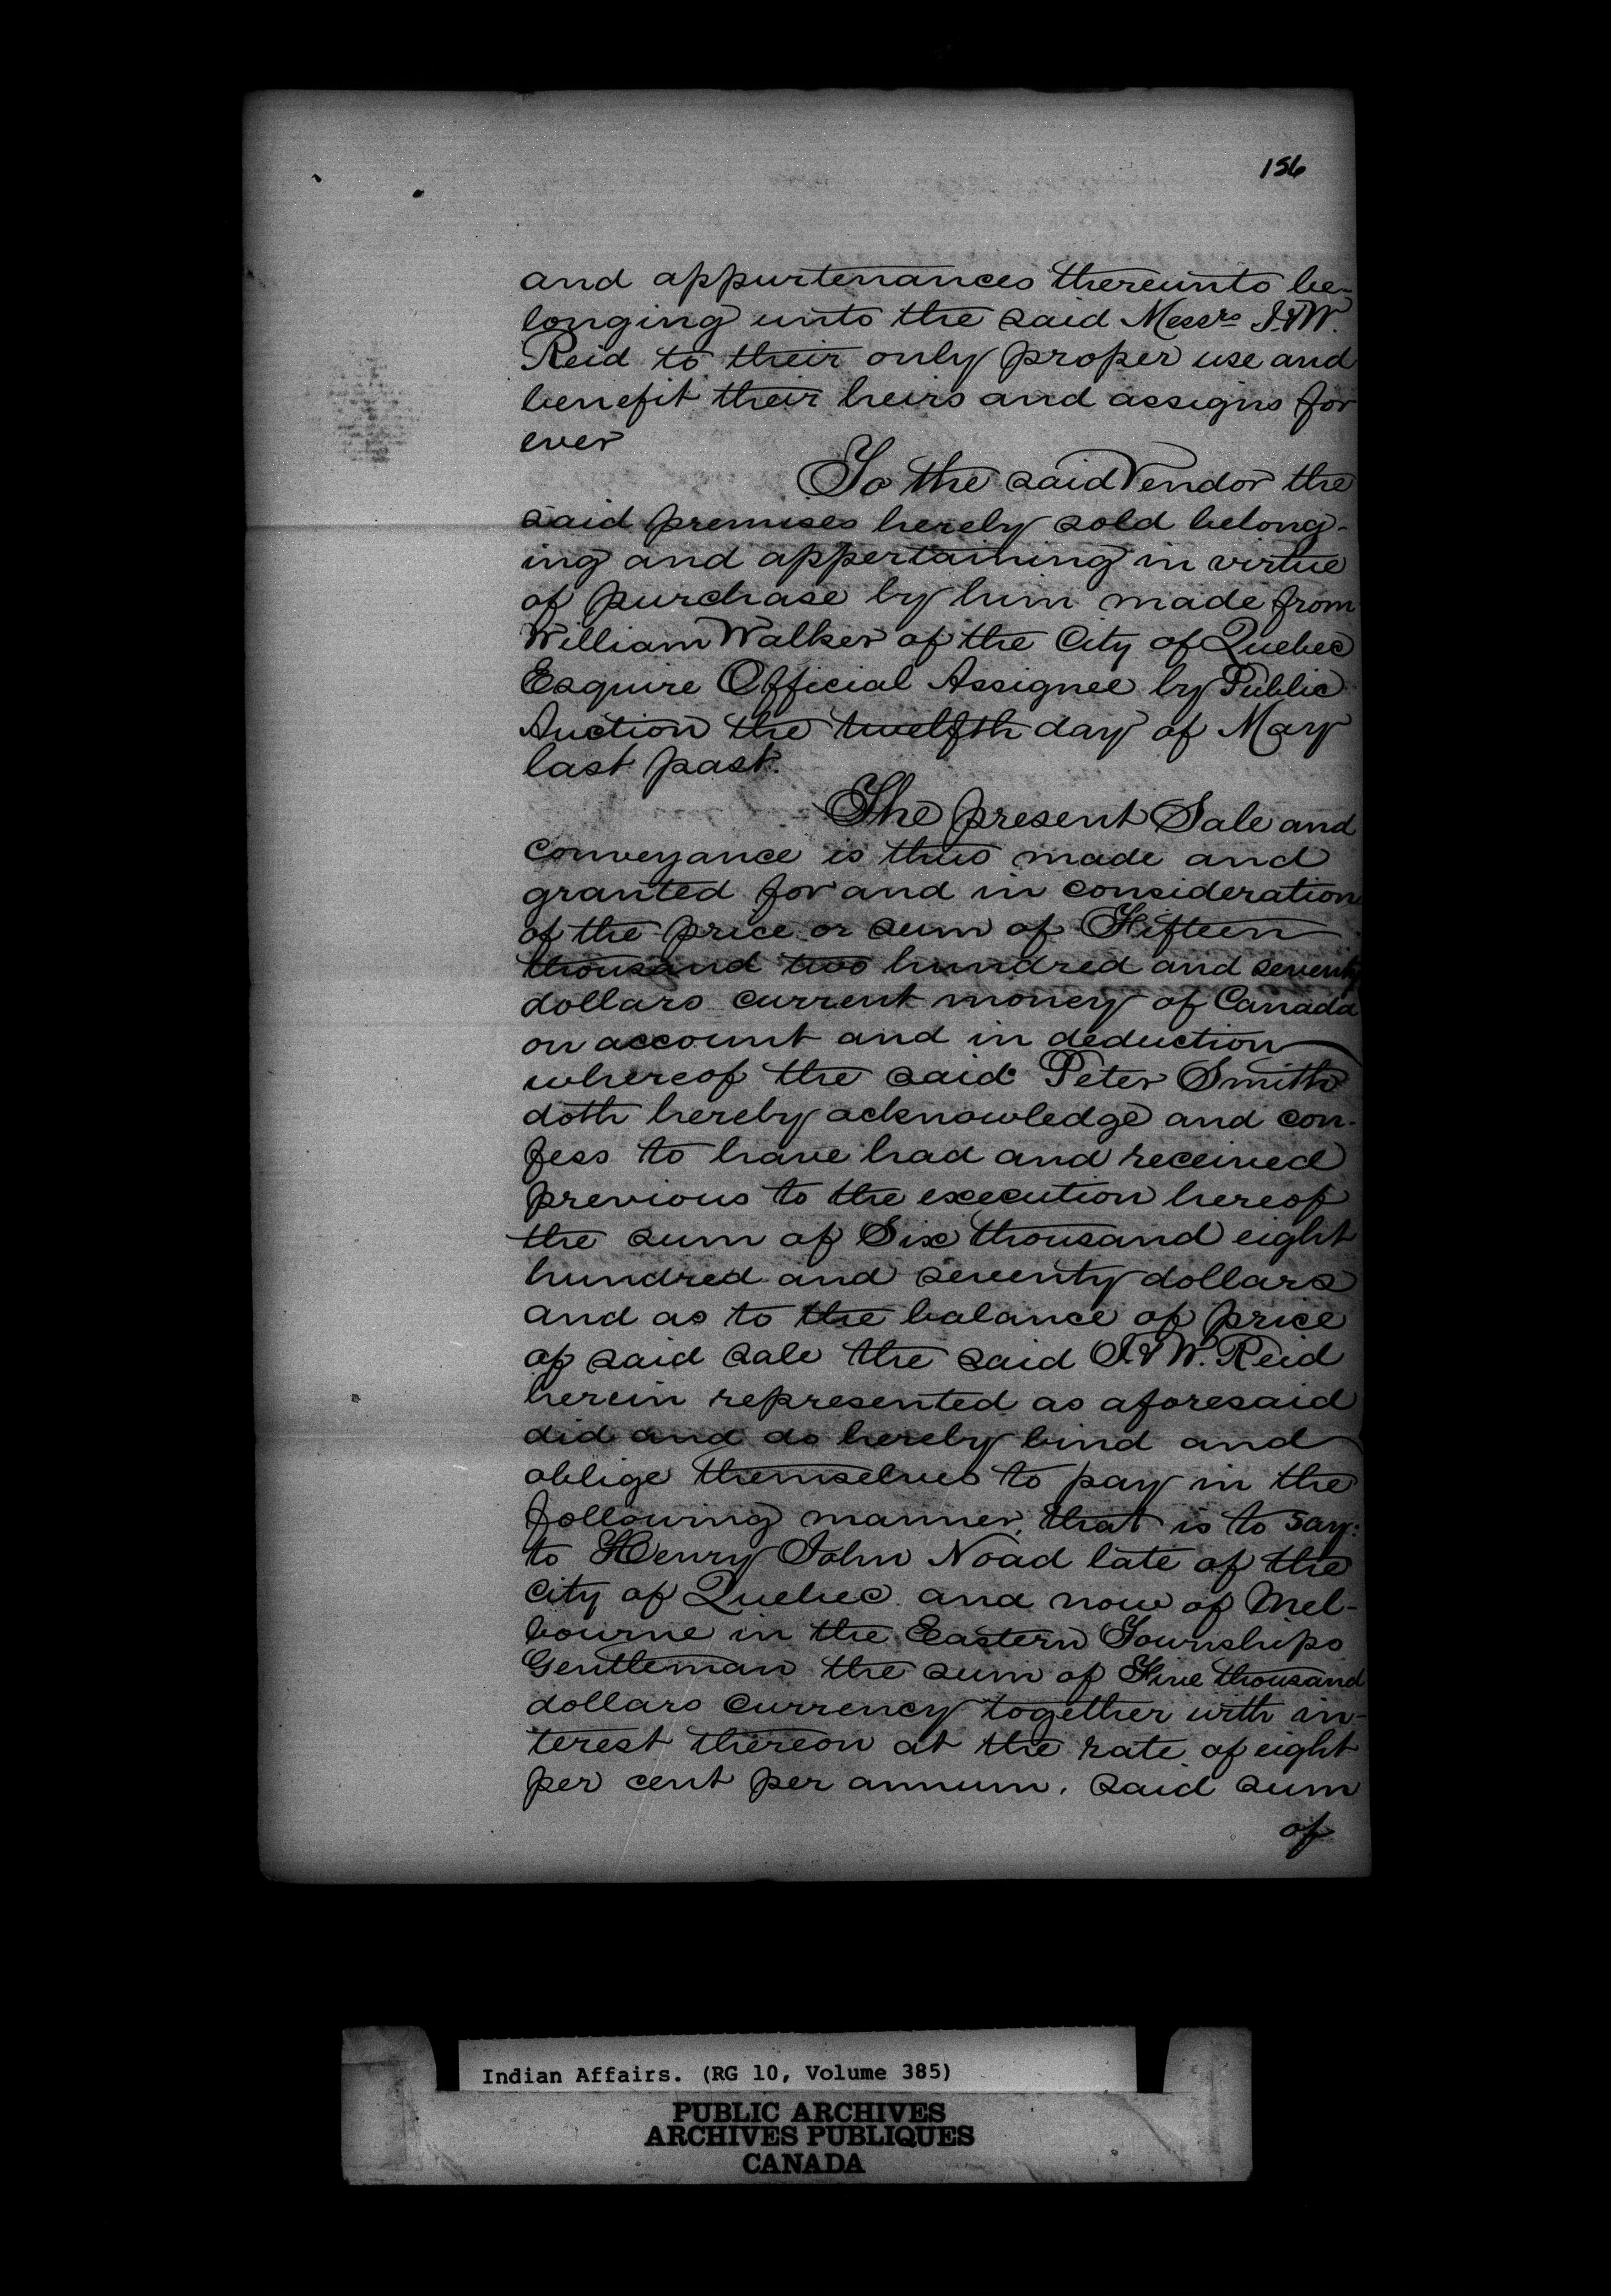 156
and appurtenances thereunto be-
longing unto the said Messrs J. & W.
Reid to their only proper use and
benefit their heirs and assigns for
ever
To the said Vendor the
said premises hereby sold belong-
ing and appertaining in virtue
of purchase by him made from
William Walker of the City of Quebec
Esquire Official Assignee by Public
Auction the twelfth day of May
last past.
The present Sale and
conveyance is thus made and
granted for and in consideration
of the price or sum of Fifteen
thousand two hundred and seventy
dollars current money of Canada
on account and in deduction
whereof the said Peter Smith
doth hereby acknowledge and con-
fess to have had and received
previous to the execution hereof
the sum of Six thousand eight
hundred and seventy dollars
and as to the balance of price
of said sale the said J. & W. Reid
herein represented as aforesaid
did and do hereby bind and
oblige themselves to pay in the
following manner, that is to say:
to Henry John Noad late of the
city of Quebec and now of Mel-
bourne in the Eastern Townships
Gentleman the sum of Five thousand
dollars currency together with in-
terest thereon at the rate of eight
per cent per annum, said sum
of
Indian Affairs. (RG 10, Volume 385)
PUBLIC ARCHIVES
ARCHIVES PUBLIQUES
CANADA